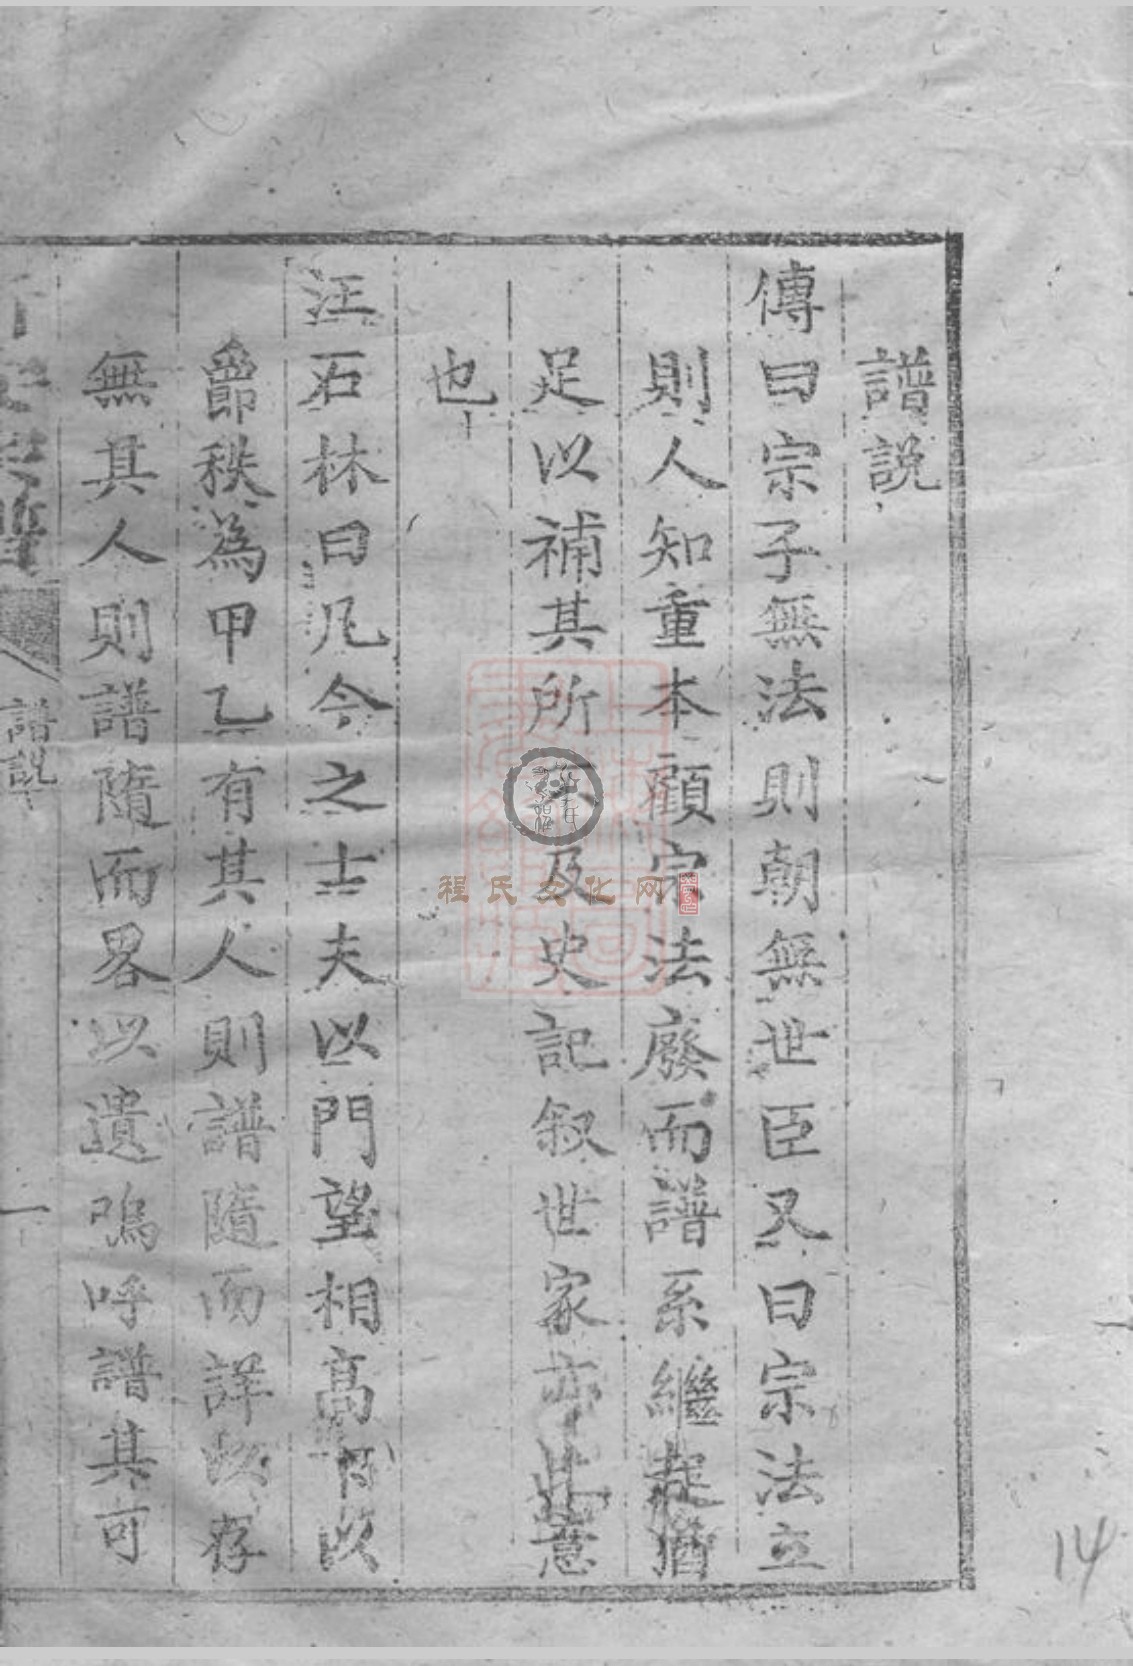 譜說
傳曰宗子無法則朝無世臣又曰宗法立
則人知重本顧宗法廢而譜系繼起猶
足以補其所不及史記叙世家亦此意
也
汪石林曰凡今之士夫以門望相高下以
爵秩為甲乙有其人則譜隨而詳以存
無其人則譜隨而畧以遺嗚呼譜其可
譜說
一
程氏文化网
14